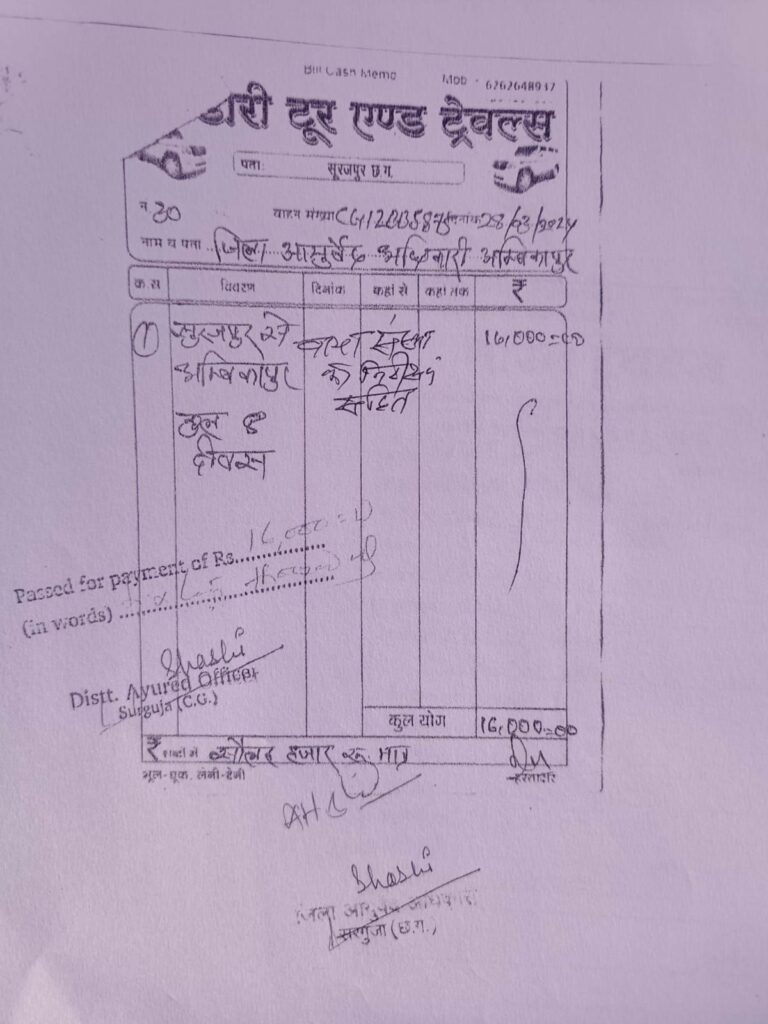 Bill Cash Memo Mob - 6262648937
डारी टूर एण्ड ट्रेवल्स
पता: सूरजपुर छ.ग.
न 30 वाहन संख्या दिनांक 28/03/2024
नाम व पता .. जिला आयुर्वेद अधिकारी अम्बिकापुर
क.स विवरण दिनांक कहां से कहां तक ₹
① सुरजपुर से 16,000=00
अम्बिकापुर
कुल 8
दीवस
संस्था
का निरीक्षण
सहित
Passed for payment of Rs. 16,000=00
(in words)
Shashi
Distt. Ayured Officer
Surguja (C.G.)
कुल योग 16,000=00
₹ शब्दों में सोलह हजार रू. मात्र
भूल-चूक, लेनी-देनी हस्ताक्षर
Shashi
जिला आयुर्वेद अधिकारी
सरगुजा (छ.ग.)